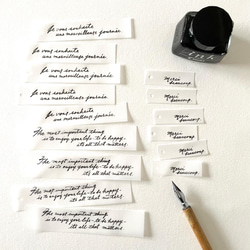 Je vous souhaite
une merveilleuse journée.
Je vous souhaite
une merveilleuse journée.
Je vous souhaite
une merveilleuse journée.
Je vous souhaite
une merveilleuse journée.
Je vous souhaite
une merveilleuse journée.
The most important thing
is to enjoy your life - to be happy -
it's all that matters.
The most important thing
is to enjoy your life - to be happy -
it's all that matters.
The most important thing
is to enjoy your life - to be happy -
it's all that matters.
The most important thing
is to enjoy your life - to be happy -
it's all that matters.
Merci
beaucoup.
Merci
beaucoup.
Merci
beaucoup.
Merci
beaucoup.
Merci
beaucoup.
Merci
beaucoup.
INK